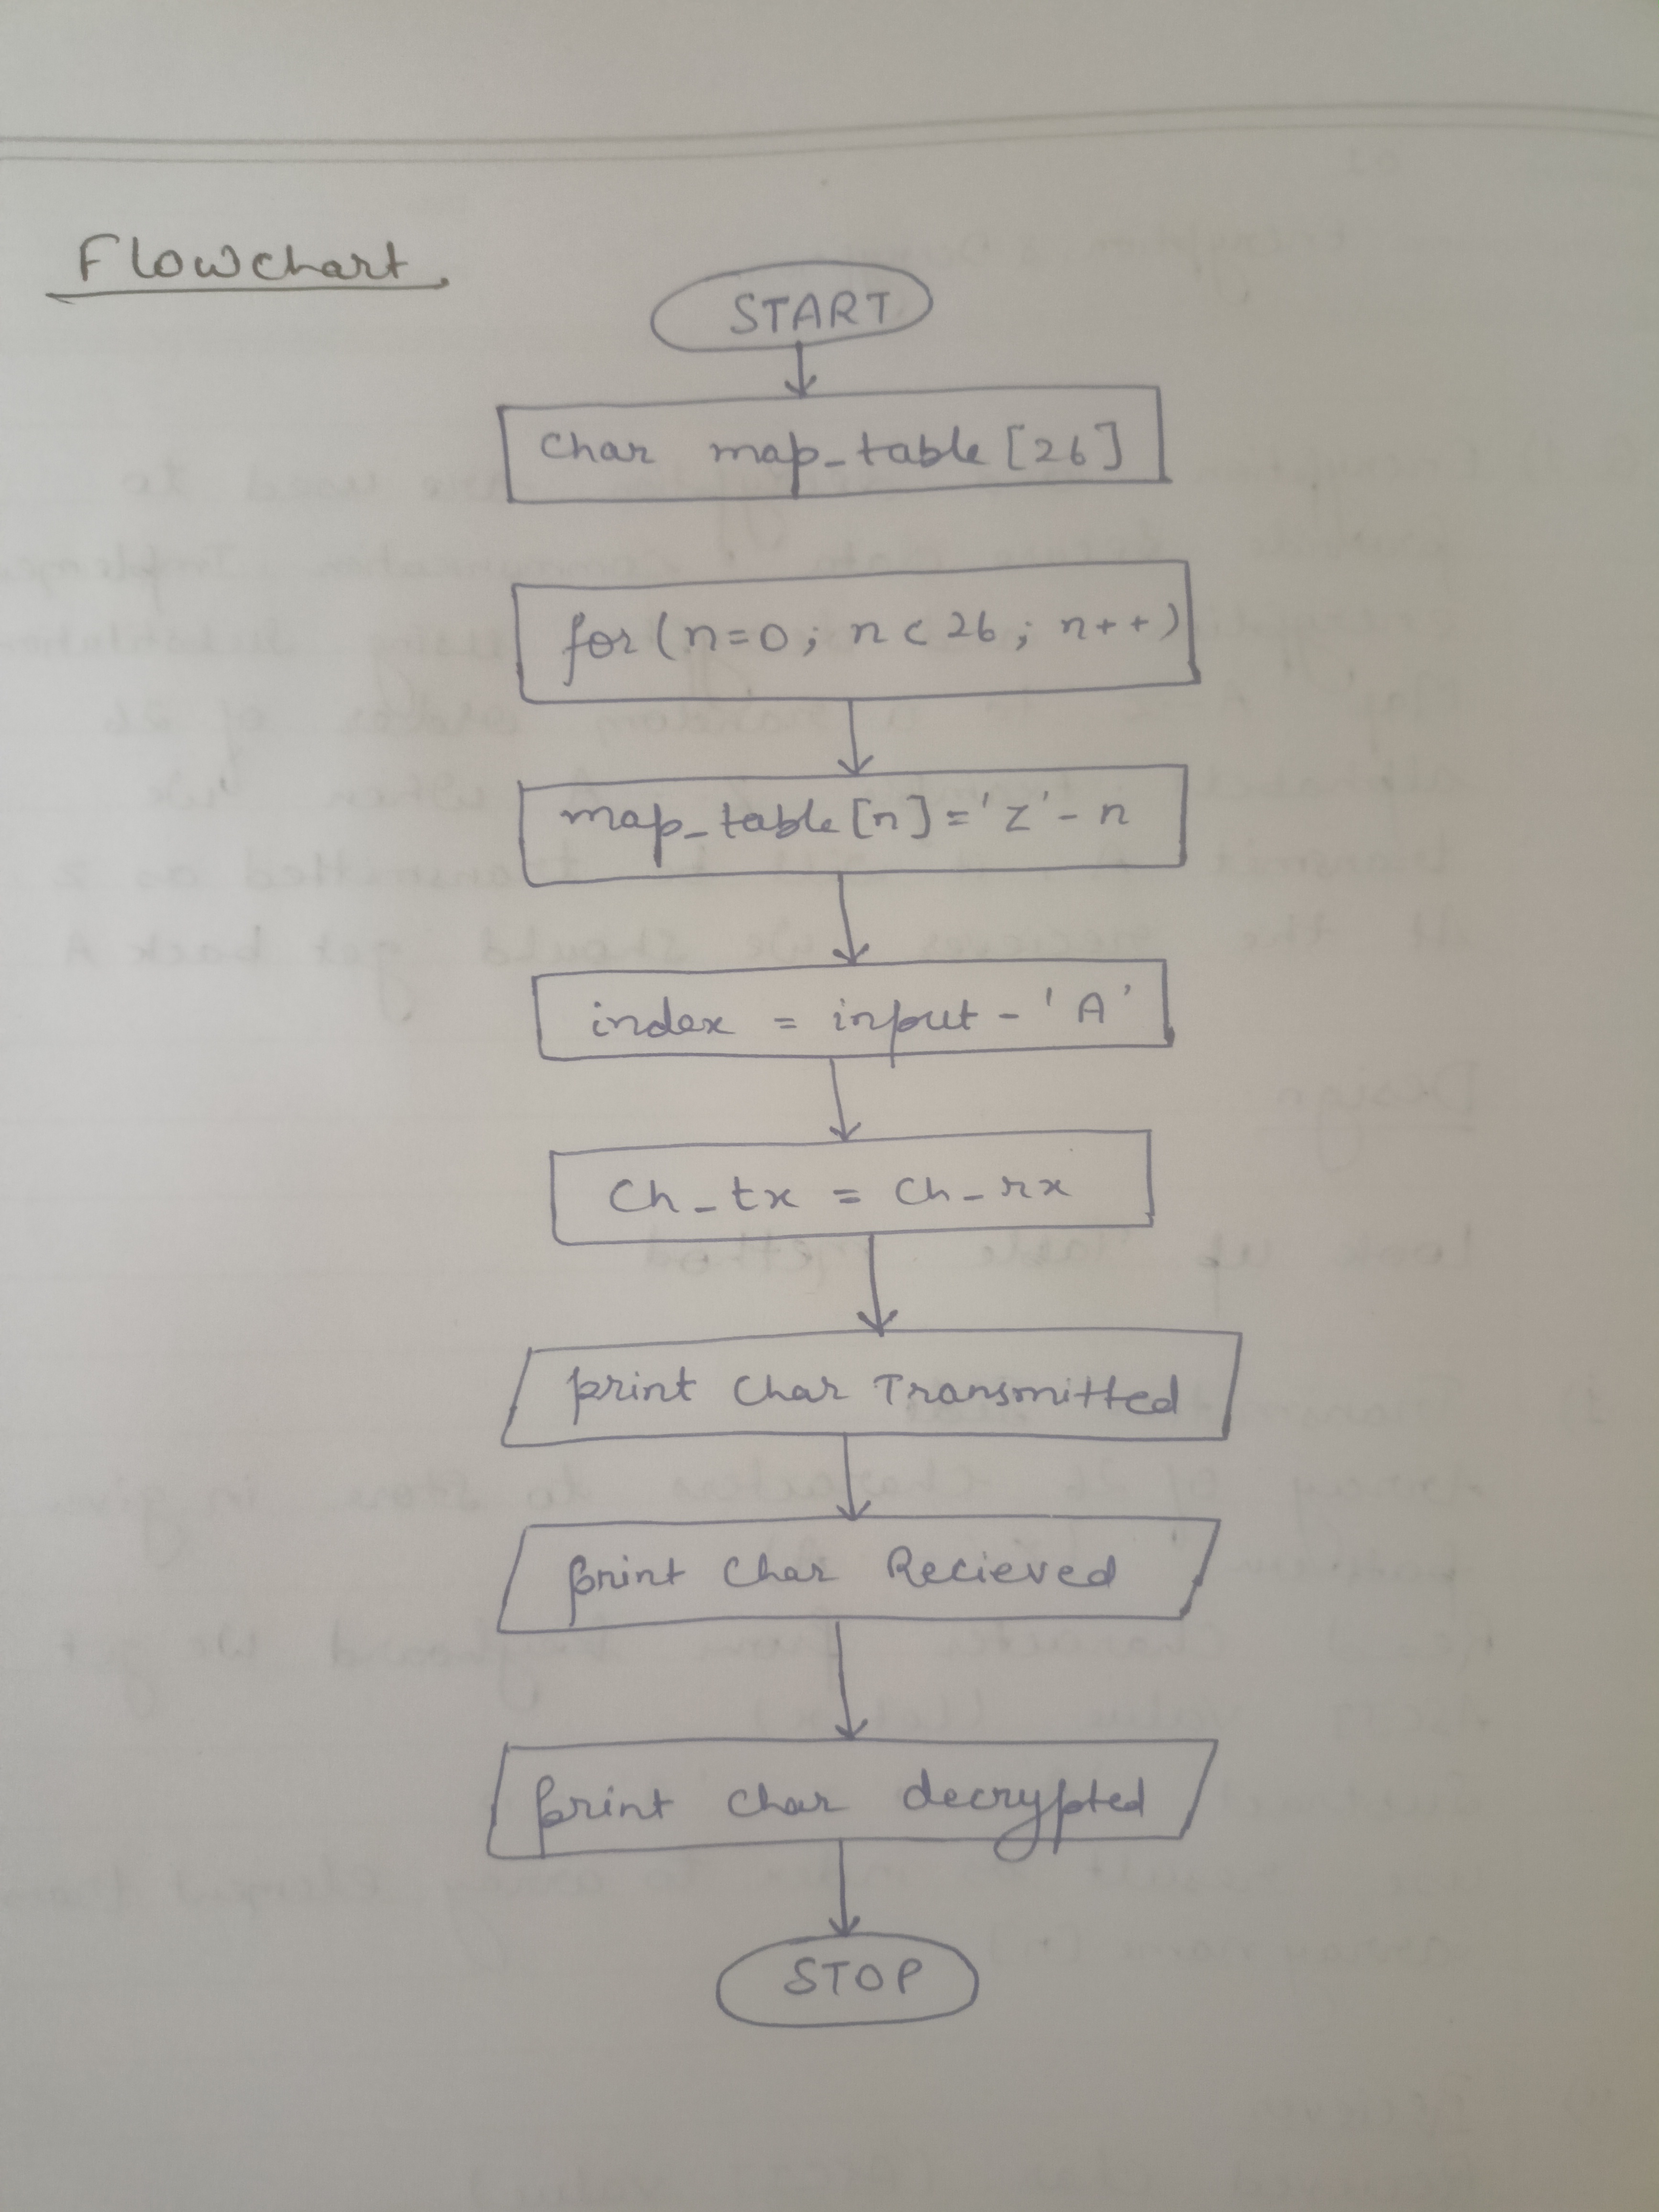 Flowchart
START
Char map_table [26]
for (n=0; n<26; n++)
map_table [n] = 'Z' - n
index = input - 'A'
Ch_tx = Ch_rx
print Char Transmitted
print Char Recieved
print char decrypted
STOP